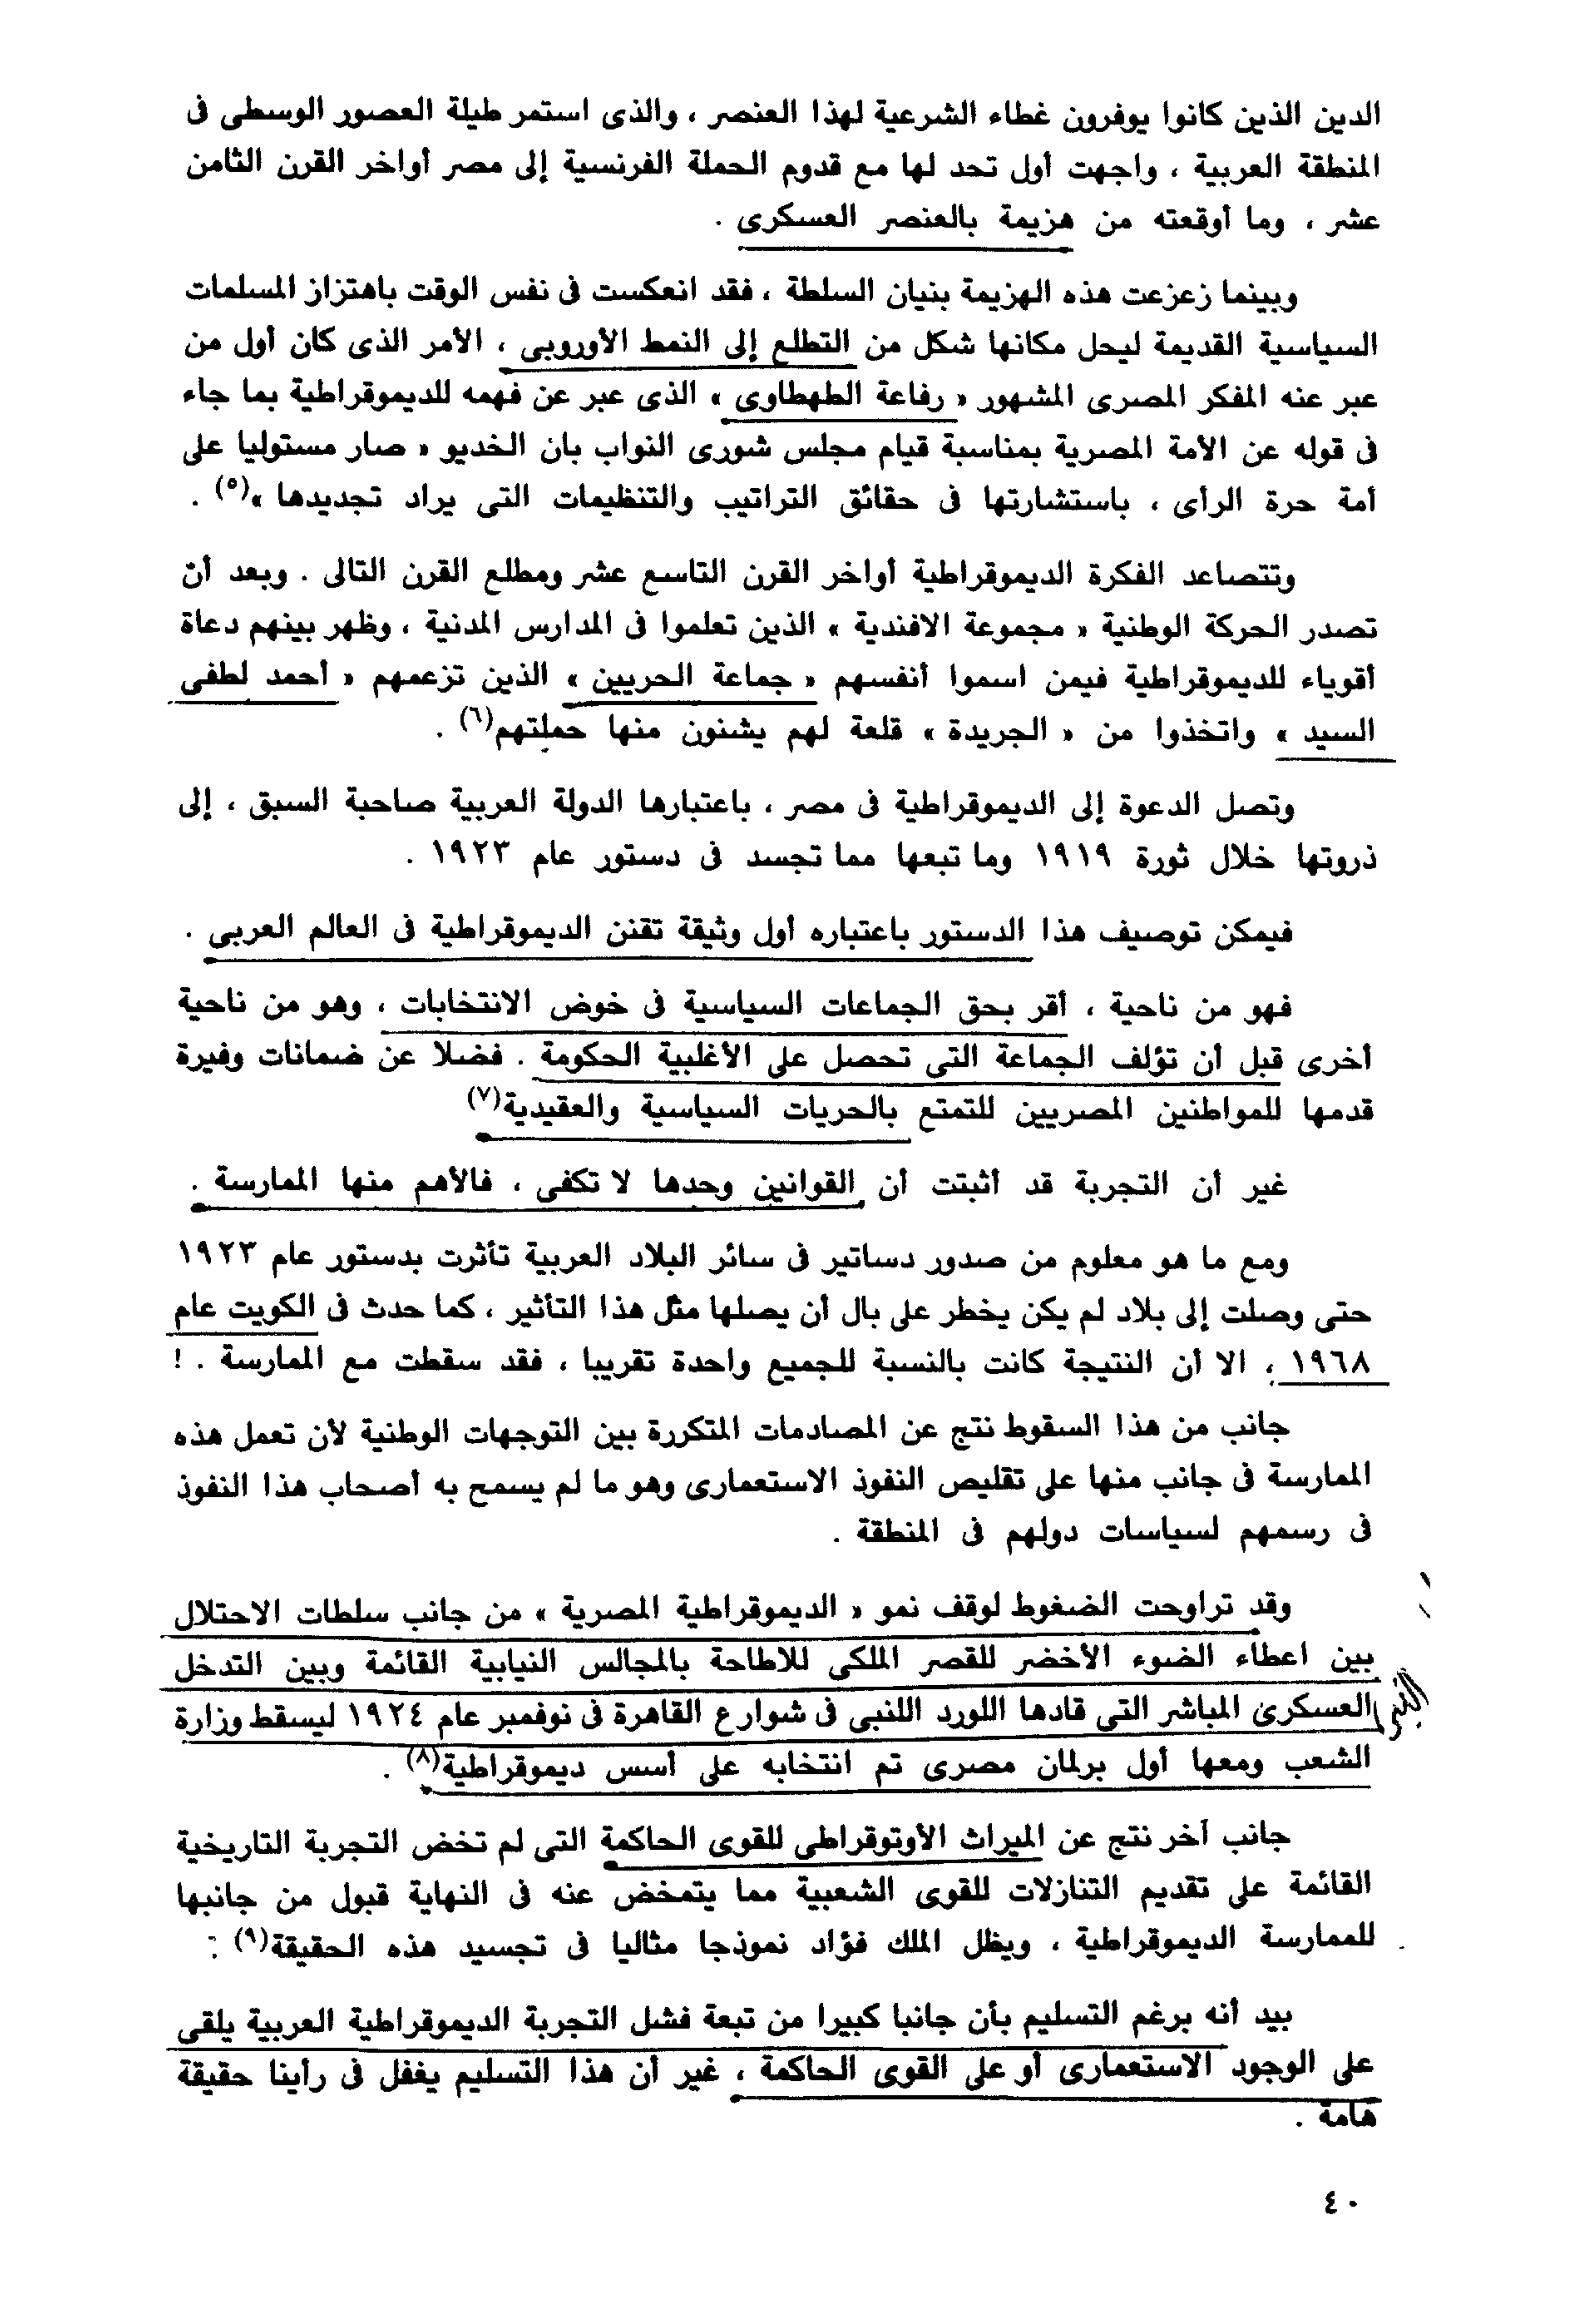 الدين الذين كانوا يوفرون غطاء الشرعية لهذا العنصر ، والذى استمر طيلة العصور الوسطى فى
المنطقة العربية ، واجهت أول تحد لها مع قدوم الحملة الفرنسية إلى مصر أواخر القرن الثامن
عشر ، وما أوقعته من هزيمة بالعنصر العسكرى .
وبينما زعزعت هذه الهزيمة بنيان السلطة ، فقد انعكست فى نفس الوقت باهتزاز المسلمات
السياسية القديمة ليحل مكانها شكل من التطلع إلى النمط الأوروبى ، الأمر الذى كان أول من
عبر عنه المفكر المصرى المشهور « رفاعة الطهطاوى » الذى عبر عن فهمه للديموقراطية بما جاء
فى قوله عن الأمة المصرية بمناسبة قيام مجلس شورى النواب بان الخديو « صار مستوليا على
أمة حرة الرأى ، باستشارتها فى حقائق التراتيب والتنظيمات التى يراد تجديدها »(٥) .
وتتصاعد الفكرة الديموقراطية أواخر القرن التاسع عشر ومطلع القرن التالى . وبعد أن
تصدر الحركة الوطنية « مجموعة الافندية » الذين تعلموا فى المدارس المدنية ، وظهر بينهم دعاة
أقوياء للديموقراطية فيمن اسموا أنفسهم « جماعة الحريين » الذين تزعمهم « أحمد لطفى
السيد » واتخذوا من « الجريدة » قلعة لهم يشنون منها حملتهم(٦) .
وتصل الدعوة إلى الديموقراطية فى مصر ، باعتبارها الدولة العربية صاحبة السبق ، إلى
ذروتها خلال ثورة ١٩١٩ وما تبعها مما تجسد فى دستور عام ١٩٢٣ .
فيمكن توصيف هذا الدستور باعتباره أول وثيقة تقنن الديموقراطية فى العالم العربى .
فهو من ناحية ، أقر بحق الجماعات السياسية فى خوض الانتخابات ، وهو من ناحية
أخرى قبل أن تؤلف الجماعة التى تحصل على الأغلبية الحكومة . فضلا عن ضمانات وفيرة
قدمها للمواطنين المصريين للتمتع بالحريات السياسية والعقيدية(٧)
غير أن التجربة قد أثبتت أن القوانين وحدها لا تكفى ، فالأهم منها الممارسة .
ومع ما هو معلوم من صدور دساتير فى سائر البلاد العربية تأثرت بدستور عام ١٩٢٣
حتى وصلت إلى بلاد لم يكن يخطر على بال أن يصلها مثل هذا التأثير ، كما حدث فى الكويت عام
١٩٦٨ ، الا أن النتيجة كانت بالنسبة للجميع واحدة تقريبا ، فقد سقطت مع الممارسة . !
جانب من هذا السقوط نتج عن المصادمات المتكررة بين التوجهات الوطنية لأن تعمل هذه
الممارسة فى جانب منها على تقليص النفوذ الاستعمارى وهو ما لم يسمح به أصحاب هذا النفوذ
فى رسمهم لسياسات دولهم فى المنطقة .
وقد تراوحت الضغوط لوقف نمو « الديموقراطية المصرية » من جانب سلطات الاحتلال
بين اعطاء الضوء الأخضر للقصر الملكى للاطاحة بالمجالس النيابية القائمة وبين التدخل
العسكرى المباشر التى قادها اللورد اللنبى فى شوارع القاهرة فى نوفمبر عام ١٩٢٤ ليسقط وزارة
الشعب ومعها أول برلمان مصرى تم انتخابه على أسس ديموقراطية(٨) .
جانب آخر نتج عن الميراث الأوتوقراطى للقوى الحاكمة التى لم تخض التجربة التاريخية
القائمة على تقديم التنازلات للقوى الشعبية مما يتمخض عنه فى النهاية قبول من جانبها
للممارسة الديموقراطية ، ويظل الملك فؤاد نموذجا مثاليا فى تجسيد هذه الحقيقة(٩) .
بيد أنه برغم التسليم بأن جانبا كبيرا من تبعة فشل التجربة الديموقراطية العربية يلقى
على الوجود الاستعمارى أو على القوى الحاكمة ، غير أن هذا التسليم يغفل فى رأينا حقيقة
هامة .
٤٠